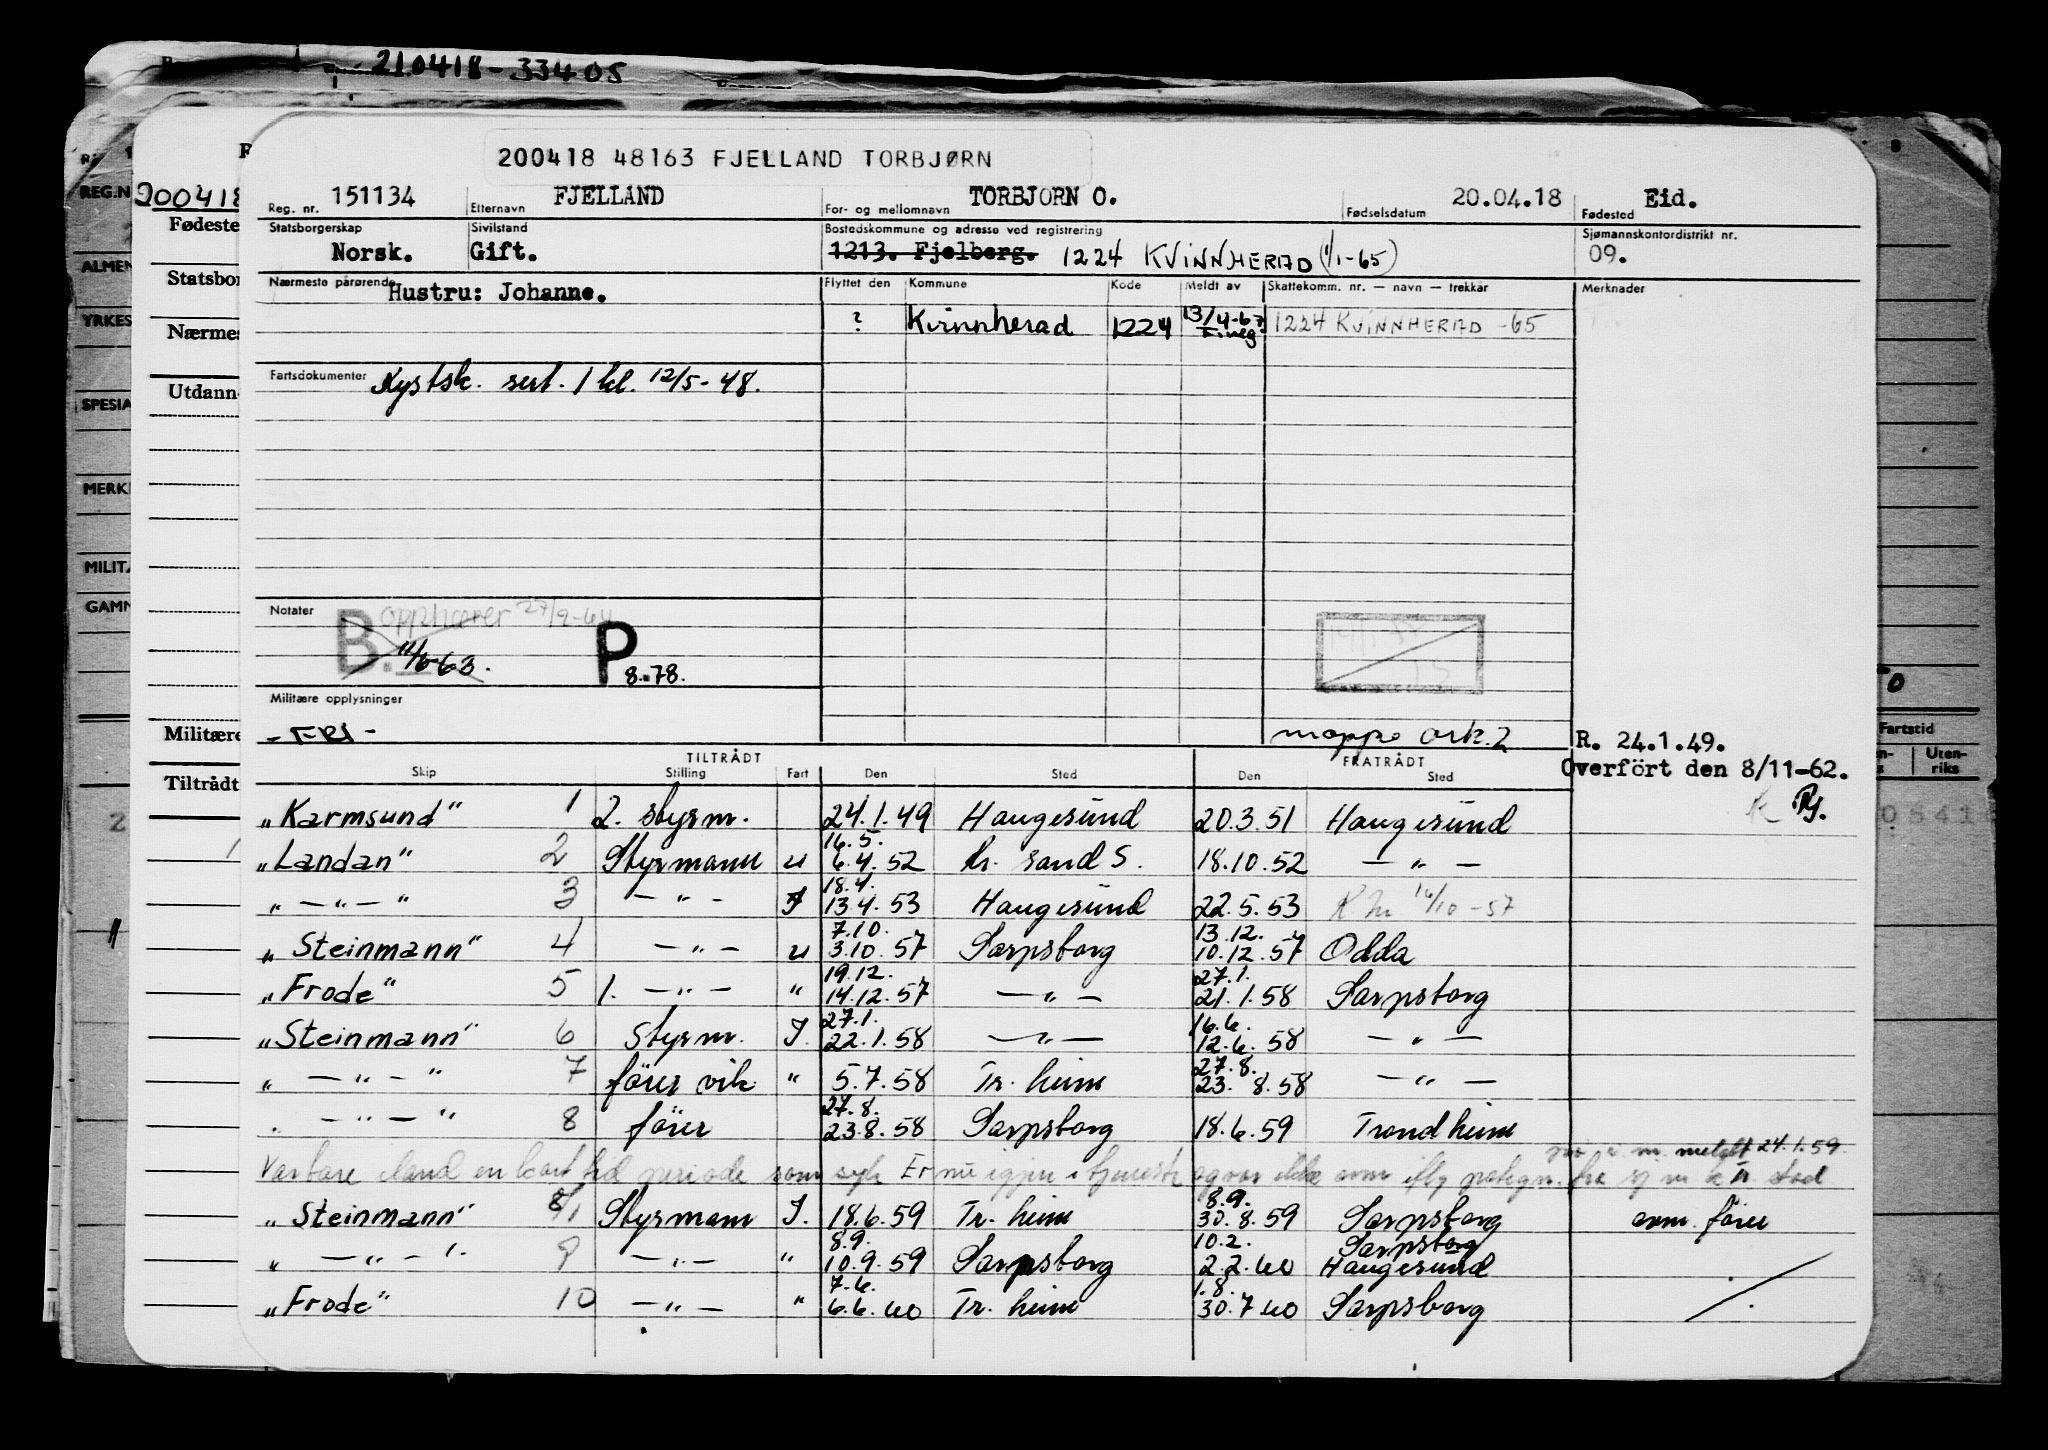 210418-33405
200418 48163 FJELLAND TORBJØRN
REG.N
200418
Reg. nr. 151134 Etternavn FJELLAND For- og mellomnavn TORBJORN O. Fødselsdatum 20.04.18 Fødested Eid.
Fødeste
Statsborgerskap Norsk. Sivilstand Gift. Bostedskommune og adresse ved registrering 1213. Fjelberg. 1224 KVINNHERAD (1/1-65) Sjømannskontordistrikt nr. 09.
ALMEN
Statsbor
Nærmeste pårørende Hustru: Johanne. Flyttet den Kommune Kode Meldt av Skattekomm. nr. — navn — trekkår Merknader
YRKES
Nærmes
? Kvinnherad 1224 13/4-67 1224 KVINNHERAD -65
Fartsdokumenter Kystsk. sert. 1 kl. 12/5-48.
SPESIA
Utdann
MERK
MILIT
GAMM
Notater B. opphører 27/9-64
11/6-63. P 8.78.
Militære opplysninger
Militære
- FRI -
moppe ark. 2
R. 24.1.49.
Overfört den 8/11-62.
Fartstid
Uten-
riks
Tiltrådt
TILTRÅDT FRATRÅDT
Skip Stilling Fart Den Sted Den Sted
„Karmsund" 1 2. styrm. 24.1.49 Haugesund 20.3.51 Haugesund
16.5.
„Landan" 2 Styrmann u 6.4.52 Kr. sand S. 18.10.52 — „ —
18.4.
„ — „ — " 3 — „ - I 13.4.53 Haugesund 22.5.53 16/10-57
7.10. 13.12.
„Steinmann" 4 — „ — u 3.10.57 Sarpsborg 10.12.57 Odda
19.12. 27.1.
„Frode" 5 1. — „ — " 14.12.57 — „ — 21.1.58 Sarpsborg
27.1. 16.6.
„Steinmann" 6 Styrm. I. 22.1.58 — „ — 12.6.58 — „ —
27.8.
„ — „ — " 7 förer vik " 5.7.58 Tr. heim 23.8.58 — „ —
27.8.
. — „ — " 8 förer 23.8.58 Sarpsborg 18.6.59 Trondheim
meldt 24.1.59.
Var bare iland en kort tid periode som syk Er nu igjen i tjeneste
8.9.
„Steinmann" 8/1 Styrmann I. 18.6.59 Tr. heim 30.8.59 Sarpsborg avm. förer
8.9. 10.2. Sarpsborg
„ — „ — " 9 — „ — " 10.9.59 Sarpsborg 2.2.60 Haugesund
7.6. 1.8.
„Frode" 10 — „ — " 6.6.60 Tr. heim 30.7.60 Sarpsborg